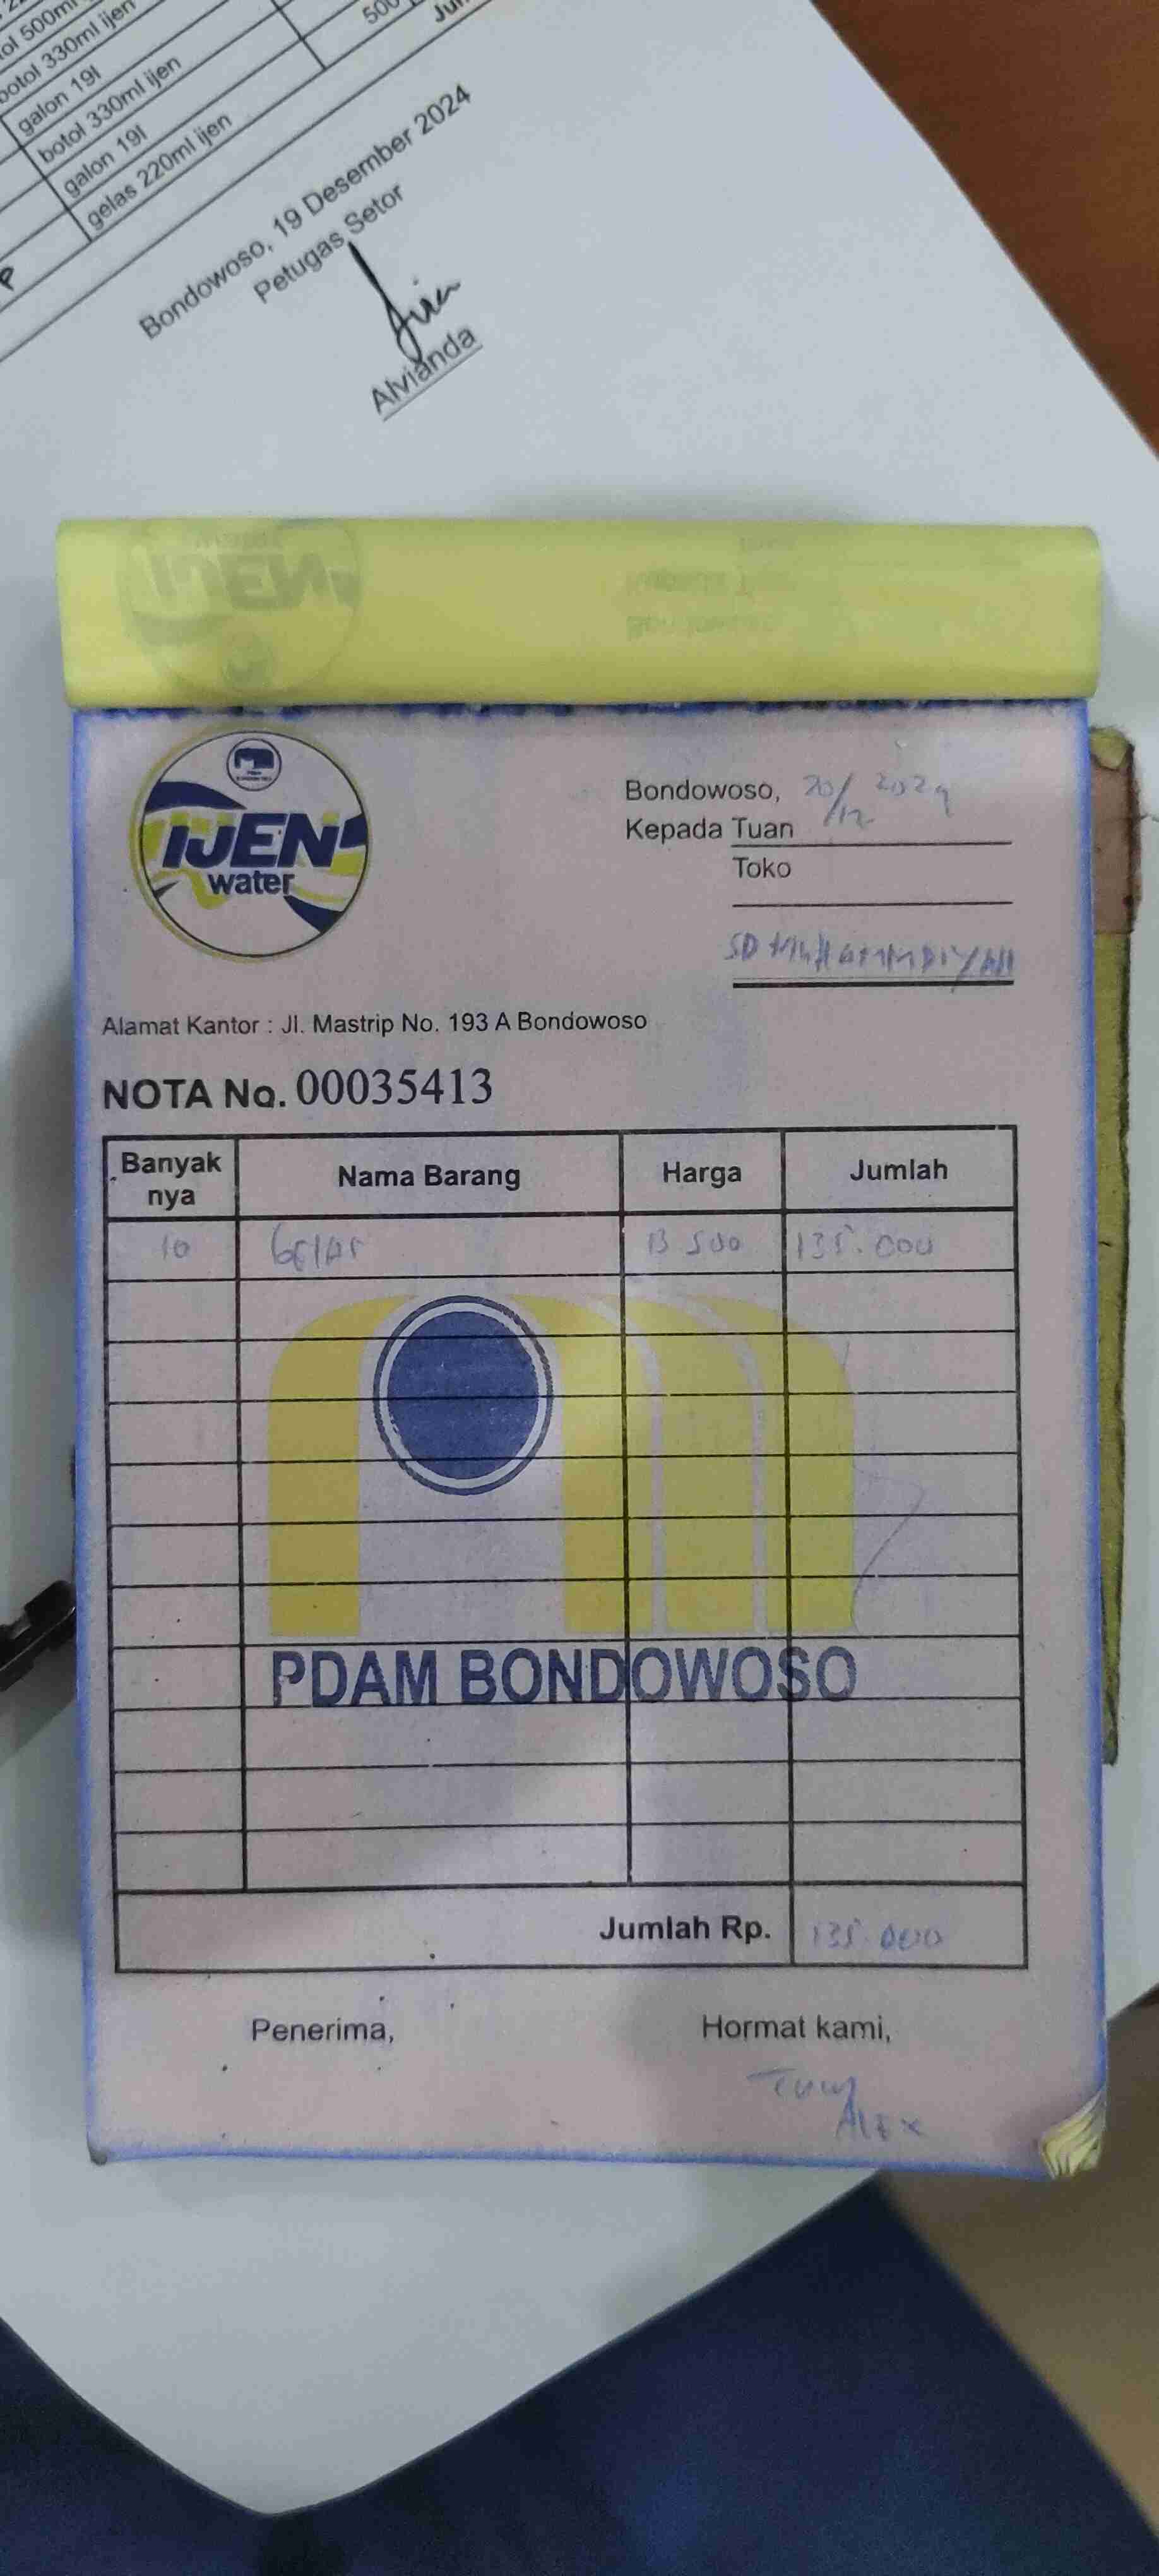 ol 500ml
botol 330ml ijen
galon 19l
botol 330ml ijen
galon 19l
gelas 220ml ijen
500
Jum
Bondowoso, 19 Desember 2024
Petugas Setor
Alvianda
IJEN
water
Bondowoso, 20/12 2024
Kepada Tuan
Toko
SD MUHAMMADIYAH
Alamat Kantor : Jl. Mastrip No. 193 A Bondowoso
NOTA No. 00035413
Banyak nya Nama Barang Harga Jumlah
10 GElAS 13 500 135.000
PDAM BONDOWOSO
Jumlah Rp. 135.000
Penerima, Hormat kami,
AlEx